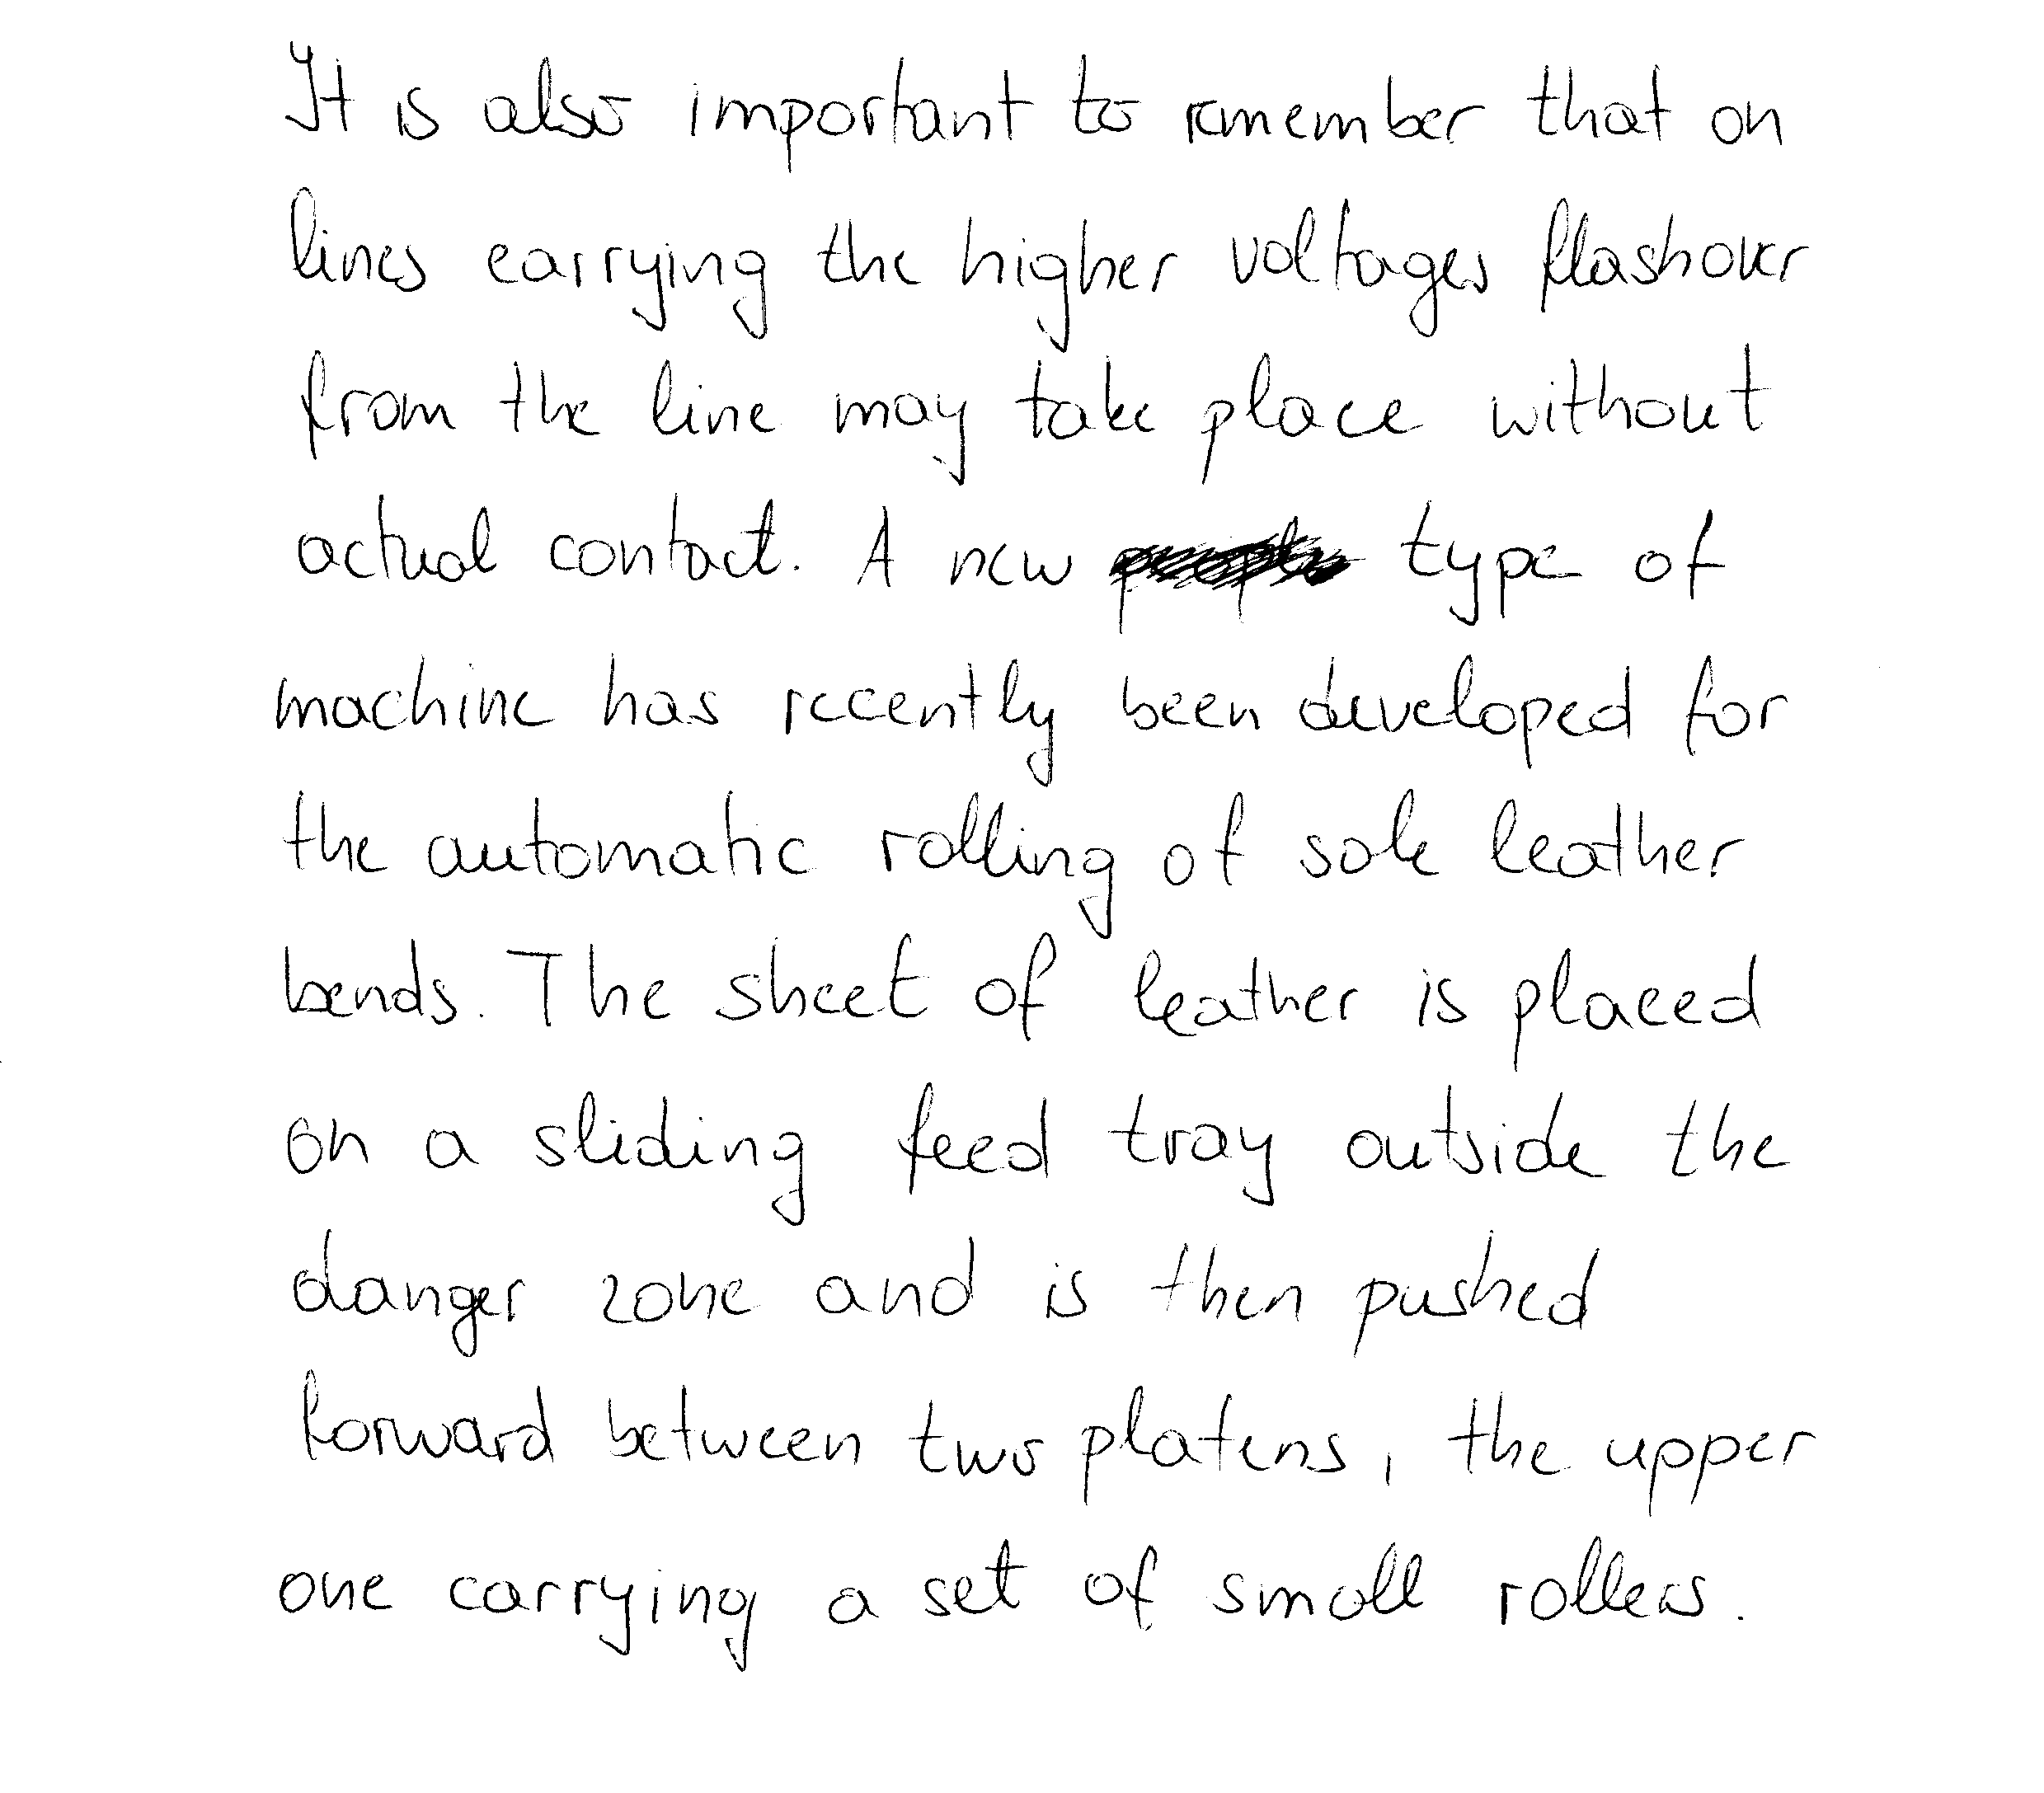 It is also important to remember that on
lines carrying the higher voltages flashover
from the line may take place without
actual contact. A new type of
machine has recently been developed for
the automatic rolling of sole leather
bends. The sheet of leather is placed
on a sliding feed tray outside the
danger zone and is then pushed
forward between two platens, the upper
one carrying a set of small rollers.